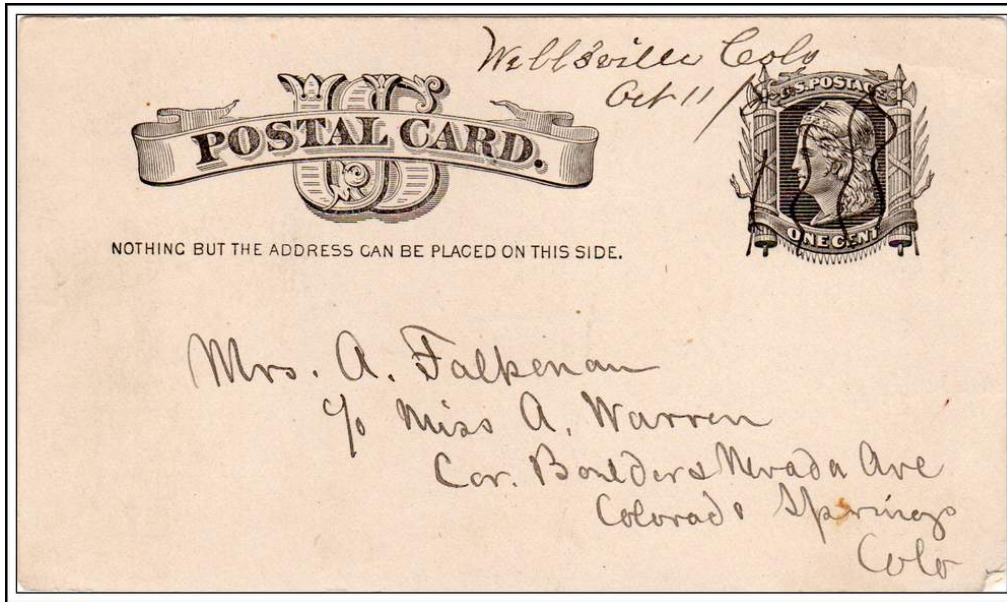 Wellsville Colo
Oct 11
U.S. POSTAGE
US
POSTAL CARD.
ONE CENT
NOTHING BUT THE ADDRESS CAN BE PLACED ON THIS SIDE.
Mrs. A. Falkenau
c/o Miss A. Warren
Cor. Boulder & Nevada Ave
Colorado Springs
Colo